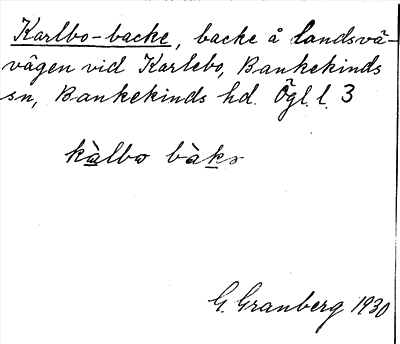 Karlbo-backe, backe å landsvä-
vägen vid Karlebo, Bankekinds
sn, Bankekinds hd. Ögl. l. 3
kàlbo bàkə
G. Granberg 1930